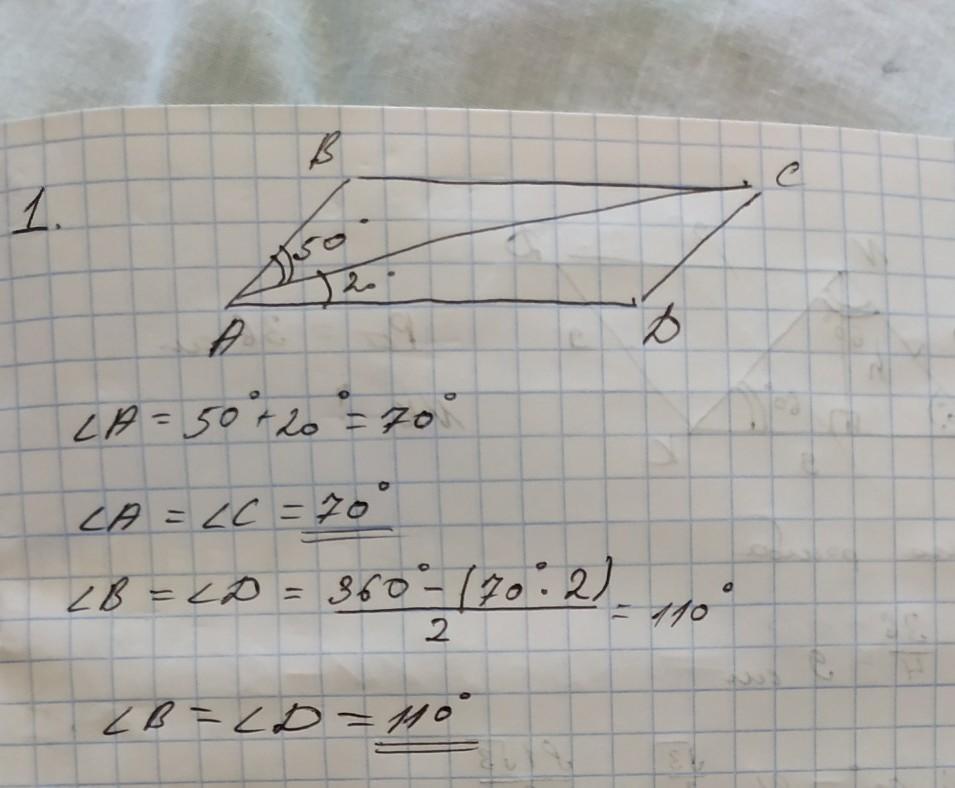 1.
B
C
50°
20°
A
D
∠A = 50° + 20° = 70°
∠A = ∠C = 70°
∠B = ∠D = 360° - (70° · 2) / 2 = 110°
∠B = ∠D = 110°